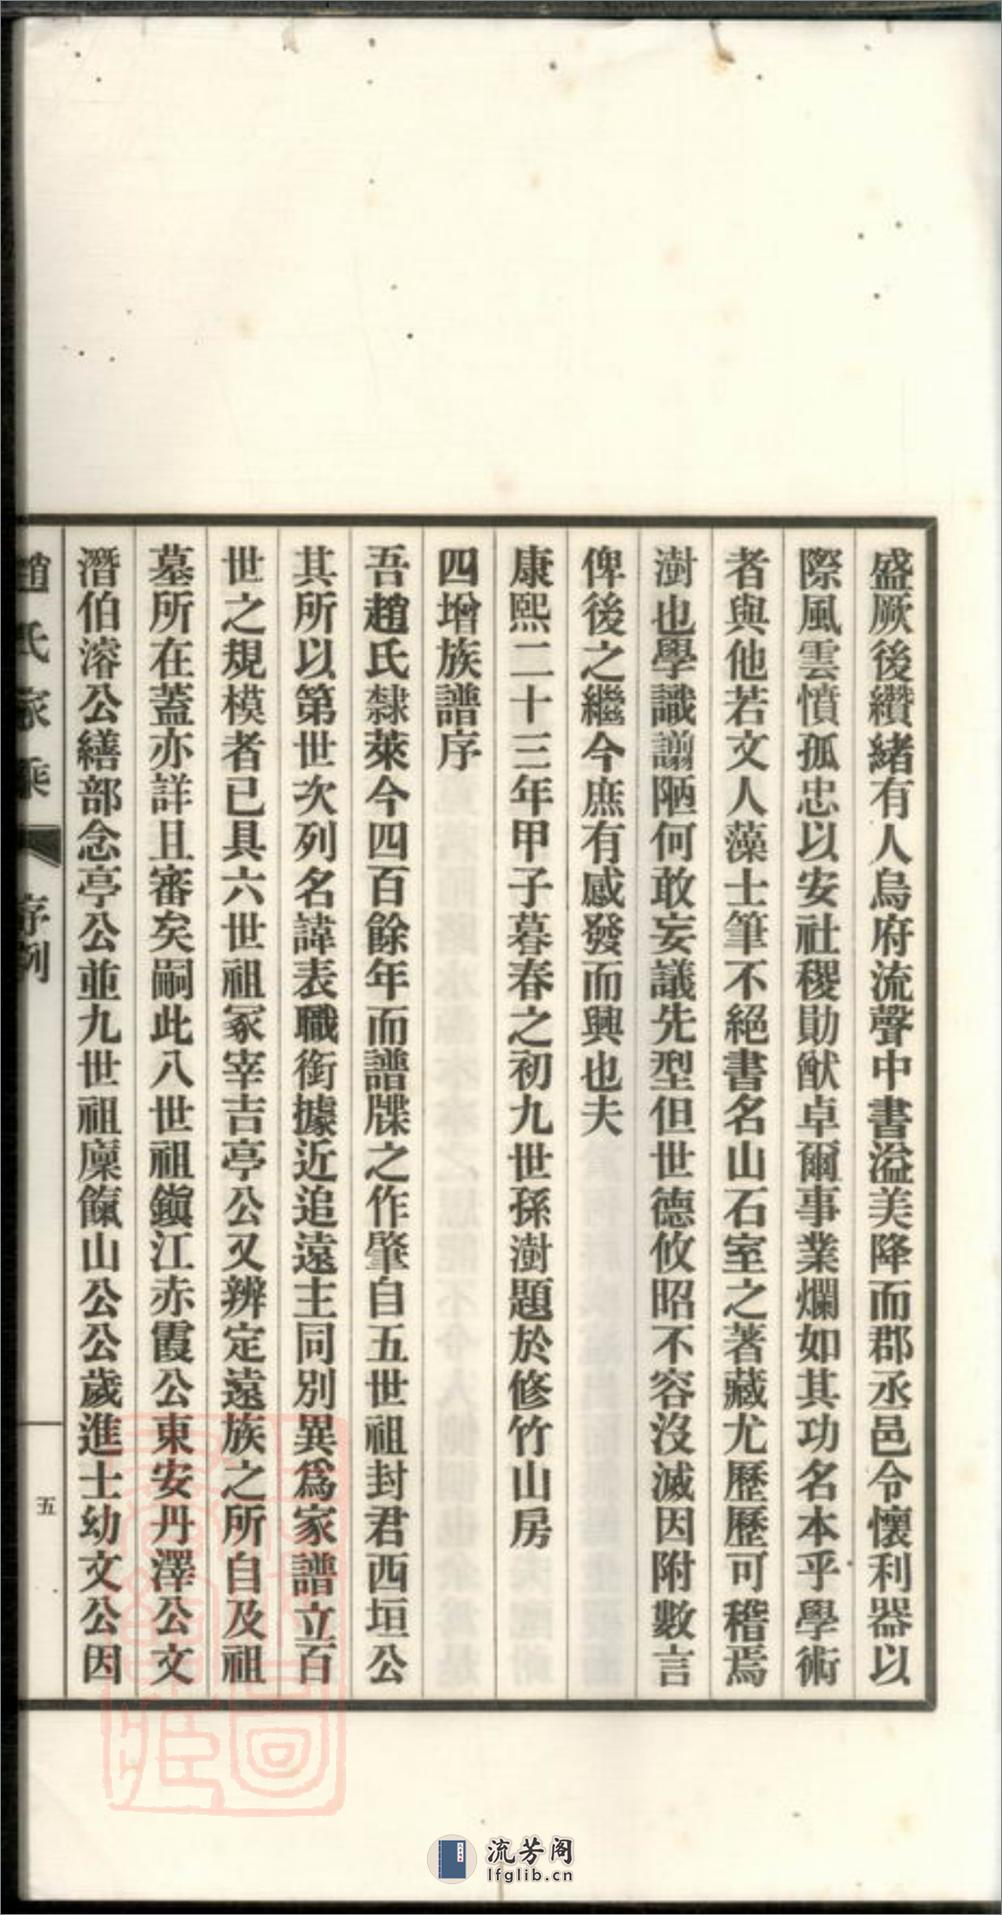 盛厥後纘緒有人烏府流聲中書溢美降而郡丞邑令懷利器以
際風雲憤孤忠以安社稷勛猷卓爾事業爛如其功名本乎學術
者與他若文人藻士筆不絕書名山石室之著藏尤歷歷可稽焉
澍也學識謭陋何敢妄議先型但世德攸昭不容沒滅因附數言
俾後之繼今庶有感發而興也夫
康熙二十三年甲子暮春之初九世孫澍題於修竹山房
四增族譜序
吾趙氏隸萊今四百餘年而譜牒之作肇自五世祖封君西垣公
其所以第世次列名諱表職銜據近追遠主同別異爲家譜立百
世之規模者已具六世祖冢宰吉亭公又辨定遠族之所自及祖
墓所在蓋亦詳且審矣嗣此八世祖鎭江赤霞公東安丹澤公文
潛伯濬公繕部念亭公並九世祖廩餼山公公歲進士幼文公因
趙氏家乘 序例 五
流芳阁
lfglib.cn